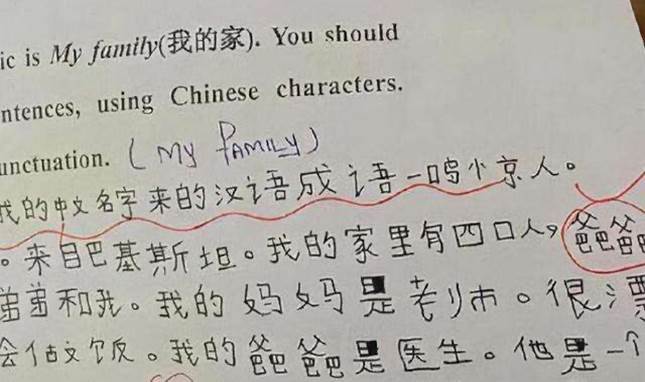 ic is My family(我的家). You should
ntences, using Chinese characters.
unctuation. (My FAMILY)
我的中文名字来的汉语成语一鸣小京人。
。来自巴基斯坦。我的家里有四口人,爸爸
弟弟和我。我的妈妈是老师。很漂
会估文饭。我的爸爸是医生。他是一个